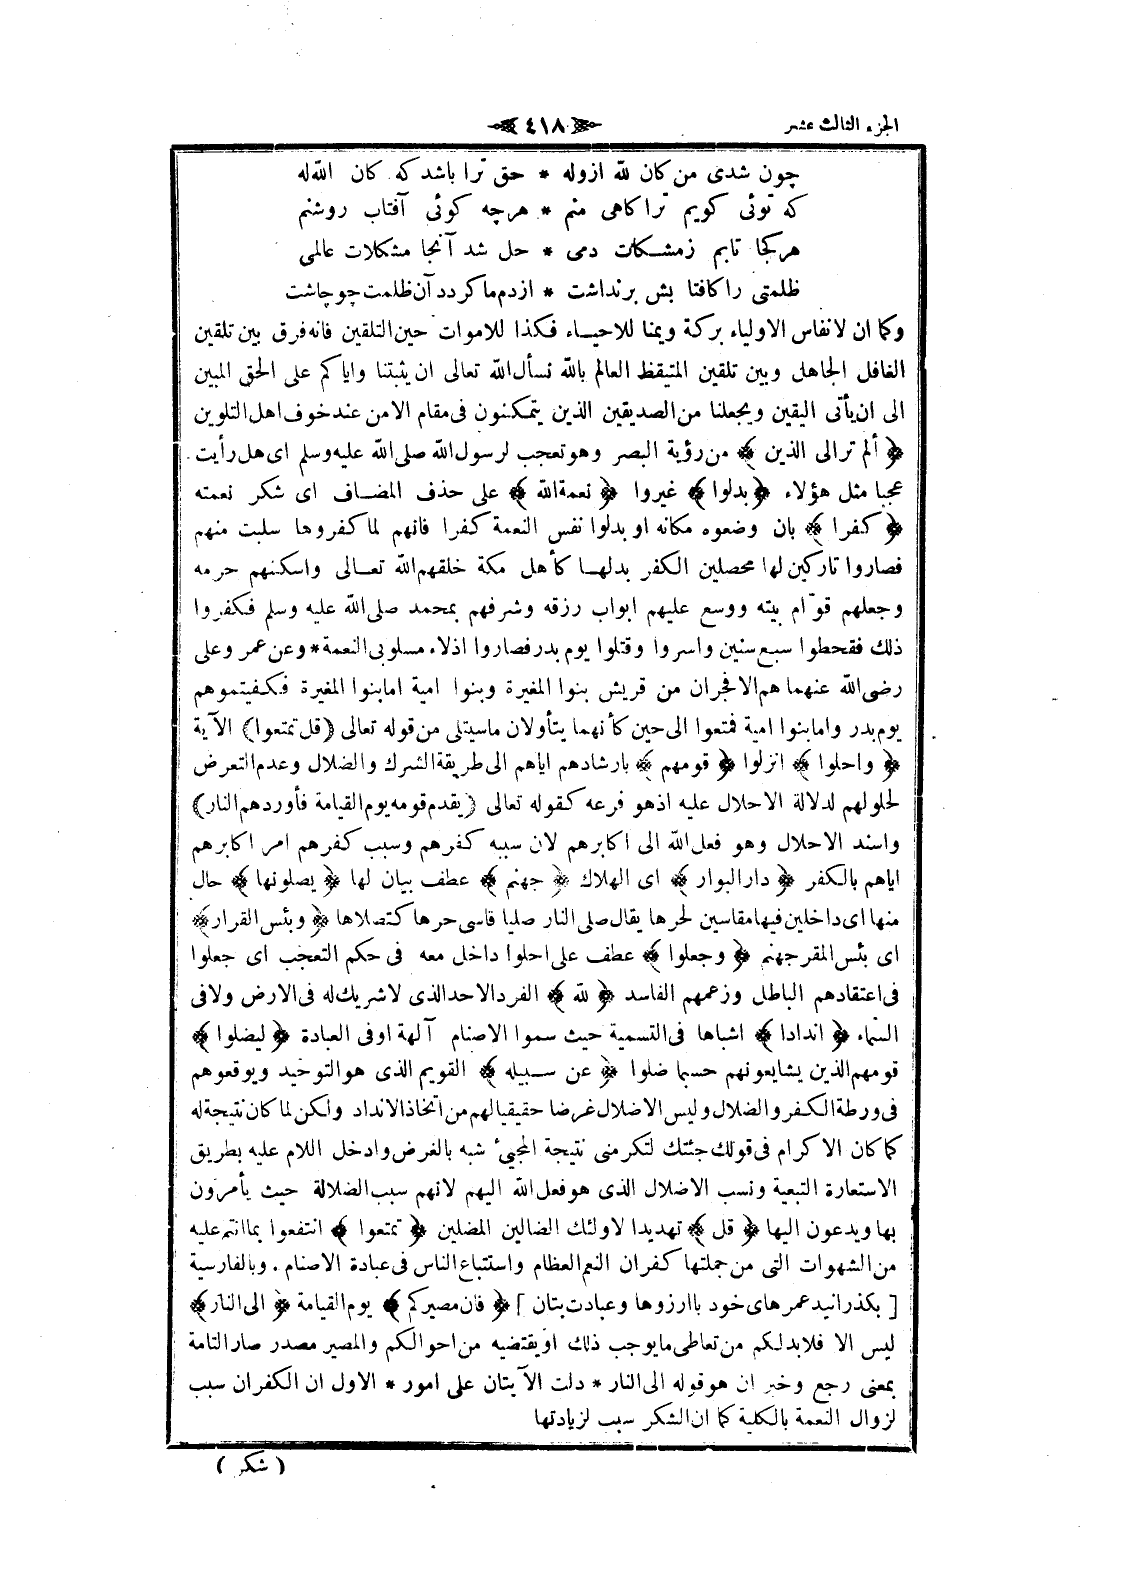 الجزء الثالث عشر ٤١٨
چون شدى من كان لله ازوله * حق ترا باشد كه كان الله له
كه توئى كويم تراكاهى منم * هرچه كوئى آفتاب روشنم
هركجا تابم زمشكات دمى * حل شد آنجا مشكلات عالمى
ظلمتى راكافتا بش برنداشت * ازدم ماكردد آن ظلمت چو چاشت
وكما ان لانفاس الاولياء بركة ويمنا للاحياء فكذا للاموات حين التلقين فانه فرق بين تلقين
الغافل الجاهل وبين تلقين المتيقظ العالم بالله نسأل الله تعالى ان يثبتنا واياكم على الحق المبين
الى ان يأتى اليقين ويجعلنا من الصديقين الذين يتمكنون فى مقام الامن عند خوف اهل التلوين
﴿ ألم تر الى الذين ﴾ من رؤية البصر وهو تعجب لرسول الله صلى الله عليه وسلم اى هل رأيت
عجبا مثل هؤلاء ﴿ بدلوا ﴾ غيروا ﴿ نعمة الله ﴾ على حذف المضاف اى شكر نعمته
﴿ كفرا ﴾ بان وضعوه مكانه او بدلوا نفس النعمة كفرا فانهم لما كفروها سلبت منهم
فصاروا تاركين لها محصلين الكفر بدلها كأهل مكة خلقهم الله تعالى واسكنهم حرمه
وجعلهم قوّام بيته ووسع عليهم ابواب رزقه وشرفهم بمحمد صلى الله عليه وسلم فكفروا
ذلك فقحطوا سبع سنين واسروا وقتلوا يوم بدر فصاروا اذلاء مسلوبى النعمة * وعن عمر وعلى
رضى الله عنهما هم الافجران من قريش بنوا المغيرة وبنوا امية اما بنوا المغيرة فكفيتموهم
يوم بدر واما بنوا امية فمتعوا الى حين كأنهما يتأولان ماسيتلى من قوله تعالى (قل تمتعوا) الآية
﴿ واحلوا ﴾ انزلوا ﴿ قومهم ﴾ بارشادهم اياهم الى طريقة الشرك والضلال وعدم التعرض
لحلولهم لدلالة الاحلال عليه اذ هو فرعه كقوله تعالى (يقدم قومه يوم القيامة فأوردهم النار)
واسند الاحلال وهو فعل الله الى اكابرهم لان سببه كفرهم وسبب كفرهم امر اكابرهم
اياهم بالكفر ﴿ دار البوار ﴾ اى الهلاك ﴿ جهنم ﴾ عطف بيان لها ﴿ يصلونها ﴾ حال
منها اى داخلين فيها مقاسين لحرها يقال صلى النار صليا قاسى حرها كتصلاها ﴿ وبئس القرار ﴾
اى بئس المقر جهنم ﴿ وجعلوا ﴾ عطف على احلوا داخل معه فى حكم التعجب اى جعلوا
فى اعتقادهم الباطل وزعمهم الفاسد ﴿ لله ﴾ الفرد الاحد الذى لا شريك له فى الارض ولا فى
السماء ﴿ اندادا ﴾ اشباها فى التسمية حيث سموا الاصنام آلهة او فى العبادة ﴿ ليضلوا ﴾
قومهم الذين يشايعونهم حسبما ضلوا ﴿ عن سبيله ﴾ القويم الذى هو التوحيد ويوقعوهم
فى ورطة الكفر والضلال وليس الاضلال غرضا حقيقيا لهم من اتخاذ الانداد ولكن لما كان نتيجة له
كما كان الاكرام فى قولك جئتك لتكرمنى نتيجة المجيئ شبه بالغرض وادخل اللام عليه بطريق
الاستعارة التبعية ونسب الاضلال الذى هو فعل الله اليهم لانهم سبب الضلالة حيث يأمرون
بها ويدعون اليها ﴿ قل ﴾ تهديدا لاولئك الضالين المضلين ﴿ تمتعوا ﴾ انتفعوا بما انتم عليه
من الشهوات التى من جملتها كفران النعم العظام واستتباع الناس فى عبادة الاصنام . وبالفارسية
[ بكذرانيد عمرهاى خود با ارزوها وعبادت بتان ] ﴿ فان مصيركم ﴾ يوم القيامة ﴿ الى النار ﴾
ليس الا فلابد لكم من تعاطى ما يوجب ذلك او يقتضيه من احوالكم والمصير مصدر صار التامة
بمعنى رجع وخبر ان هو قوله الى النار * دلت الآيتان على امور * الاول ان الكفران سبب
لزوال النعمة بالكلية كما ان الشكر سبب لزيادتها
( شكر )